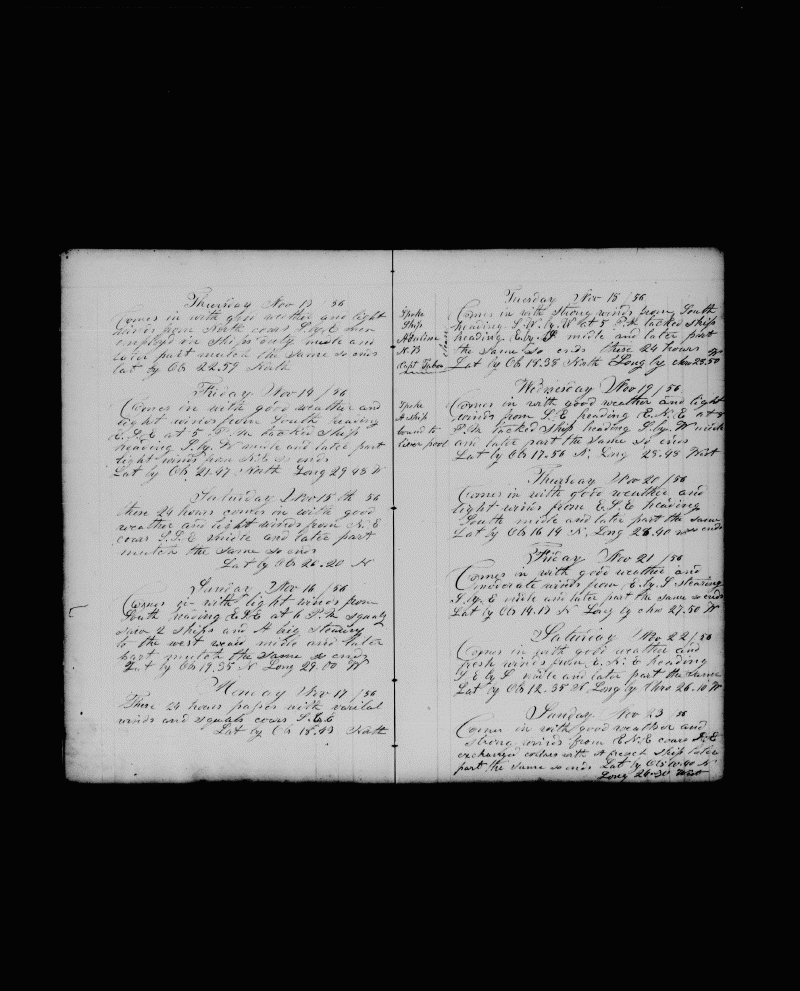 Thursday Nov 13 / 56
Comes in with good weather and light
winds from North cours S.by.E men
employd in Ships duty midle and
later part mutch the same so ends
Lat by Ob 22.59 North
Friday Nov 14 / 56
Comes in with good weather and
light winds from South heading
E.S.E at 5 P.M tacked Ship
heading S.by.W midle and later part
light winds from so ends
Lat by Ob 21.47 North Long 29 48 W
Saturday Nov 15 th 56
these 24 hours comes in with good
weather and light winds from N.E
cours S.S.E midle and later part
mutch the same so ends
Lat by Ob 20.20 N
Sunday Nov 16 / 56
Comes in with light winds from
South heading E.S.E at 6 P.M squaly
saw 2 ships and A brig steering
to the west ward midle and later
part mutch the same so ends
Lat by Ob 19.35 N Long 29.00 W
Monday Nov 17 / 56
These 24 hours passes with varibal
winds and squals cours S.E
Lat by Ob 18.43 North
Tuesday Nov 18 / 56
Spoke
Ship
N.B
Capt Tabor
clean
Comes in with strong winds from South
heading S.W.by.W at 5 P.M tacked ship
heading E.by.S midle and later part
the same so ends these 24 hours
Lat by Ob 18.38 North Long by chro 28.50
Wednesday Nov 19 / 56
Spoke
A ship
bound to
Liver pool
Comes in with good weather and light
winds from S.E heading E.N.E at 8
P.M tacked Ship heading S.by.W midle
and later part the same so ends
Lat by Ob 17.56 N. Long 28.48 West
Thursday Nov 20 / 56
Comes in with good weather and
light winds from E.S.E heading
South midle and later part the same
Lat by Ob 16 14 N. Long 28.40 so ends
Friday Nov 21 / 56
Comes in with good weather and
moderate winds from E.by.S stearing
S.by.E midle and later part the same so ends
Lat by Ob 14.17 N Long by chro 27.50 W
Saturday Nov 22 / 56
Comes in with good weather and
fresh winds from E.N.E heading
S E by S midle and later part the same
Lat by Ob 12.35 N Long by Chro 26.10 W
Sunday Nov 23 56
Comes in with good weather and
strong winds from E.N.E cours S.E
exchanged colars with A french ship later
part the same so ends Lat by Ob 10.40 N
Long 26-30 West